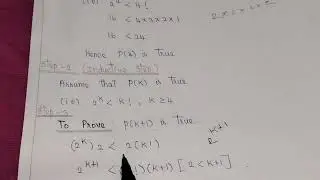 2^4 < 4!
16 < 4×3×2×1
16 < 24
Hence P(k) is True
Step-2 (inductive step)
Assume that P(k) is True
(ie) 2^k < k! , k ≥ 4
To Prove P(k+1) is True
(2^k) 2 < 2(k!)
2^{k+1} < !)(k+1) [2 < k+1]